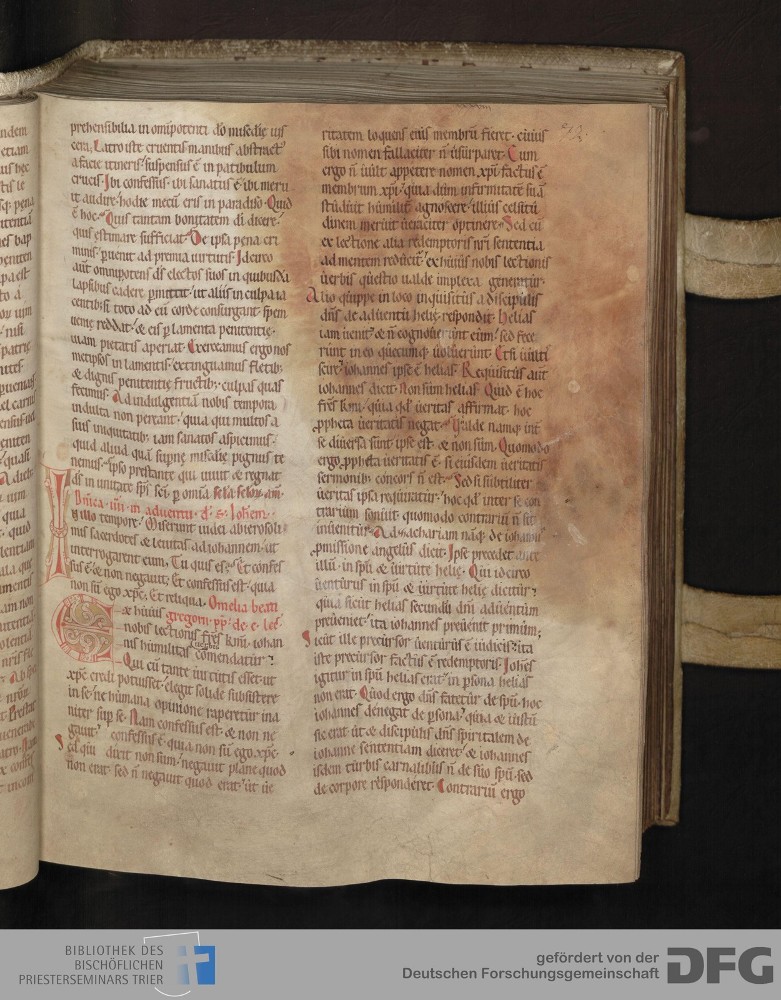 prehensibilia in omīpotenti dō miserīe uis
cera; Latro iste cruentis manibus abstract᷒
a facie itineris suspensus ē in patibulum
crucis. Ibi confessus. ibi sanatus ē. ibi meru
it audire. hodie mecū eris in paradiso. Quid
ē hoc. Quis tantam bonitatem dī dicere.
quis estimare sufficiat. De ipsa pena cri
minis. puenit ad premia uirtutis. Ideirco
aūt omnipotens dī electos suos in quibusdā
lapsibus cadere pmittit. ut aliis in culpa ia
centib; si toto ad eū corde consurgant. spem
uenie reddat. & eis p lamenta penitentie.
uiam pietatis aperiat. Exerceamus ergo nos
metipsos in lamentis. extinguamus fletib;
& dignis penitentie fructib; culpas quas
fecimus. Ad indulgentiā nobis tempora
indulta non pereant. quia qui multos a
suis iniquitatib; iam sanatos aspicimus.
quid aliud quā supne miserīe pignus te
nemus. Ipso prestante qui uiuit & regnat
dī in unitate spī sēī. p omīa sēla sēlou. am̄.
Dn̄ica. iiii. in aduentu. d. s. Iohem.
In illo tempore. Miserunt iudei ab ierosoli
mis sacerdotes & leuitas ad iohannem. ut
interrogarent eum. Tu quis es. Et confes
sus ē. & non negauit. Et confessus est. quia
non sū ego xpc. Et reliqua. Omelia beati
gregorii. pp. de. e. lec.
Ex huius
nobis lectionis frēs kmī. iohan
nis humilitas comendatur.
Qui cū tante uirtutis esset. ut
xpc credi potuisset. elegit solide subsistere
in se. ne humana opinione raperetur ina
niter sup se. Nam confessus est. & non ne
gauit. confessus ē. quia non sū ego. xpc.
Sed qui dixit non sum. negauit plane quod
non erat. sed n̄ negauit quod erat. ut ue
32.
ritatem loquens eius membrū fieret. cuius
sibi nomen fallaciter n̄ usurparet. Cum
ergo n̄ uult appetere nomen xpī. factus ē
membrum xpī. quia dum infirmitatē suā
studuit humilit̄ agnoscere. illius celsitu
dinem meruit ueraciter optinere. Sed cū
ex lectione alia redemptoris nr̄i sententia
ad mentem reducit̄. ex huius nobis lectionis
uerbis questio ualde implexa generatur.
Alio quippe in loco inquisitus a discipulis
dn̄s de aduentu helie. respondit. helias
iam uenit. & n̄ cognouerunt eum. sed fece
runt in eo quecumq; uoluerunt. Et si uulti
scire. iohannes ipse ē helias. Requisitus aūt
iohannes dicit. Non sum helias. Quid ē hoc
frēs kmī. quia qd̄ ueritas affirmat. hoc
ppheta ueritatis negat. Valde namq; int̄
se diuersa sunt. ipse est. & non sum. Quomodo
ergo ppheta ueritatis ē. si eiusdem ueritatis
sermonib; concors n̄ est. Sed si subtiliter
ueritas ipsa requiratur. hoc qd̄ inter se con
trarium sonuit. quomodo contrariū n̄ sit
inuenitur. Ad zachariam naq; de iohanis
pmissione angelus dicit. Ipse precedet ante
illū. in spū & uirtute helie. Qui idcirco
uenturus in spū & uirtute helie dicitur.
quia sicut helias secundū dnī aduentum
preueniet. ita iohannes preuenit primum;
Sicut ille precursor uenturus ē iudicis. ita
iste precursor factus ē redemptoris. Iohēs
igitur in spū helias erat. in psona helias
non erat. Quod ergo dn̄s fatetur de spū. hoc
iohannes denegat de psona. quia & iustū
sic erat. ut & discipulis dn̄s spiritalem de
iohanne sententiam diceret. & iohannes
isdem turbis carnalibus n̄ de suo spū. sed
de corpore responderet. Contrariū ergo
BIBLIOTHEK DES
BISCHÖFLICHEN
PRIESTERSEMINARS TRIER
gefördert von der
Deutschen Forschungsgemeinschaft
DFG